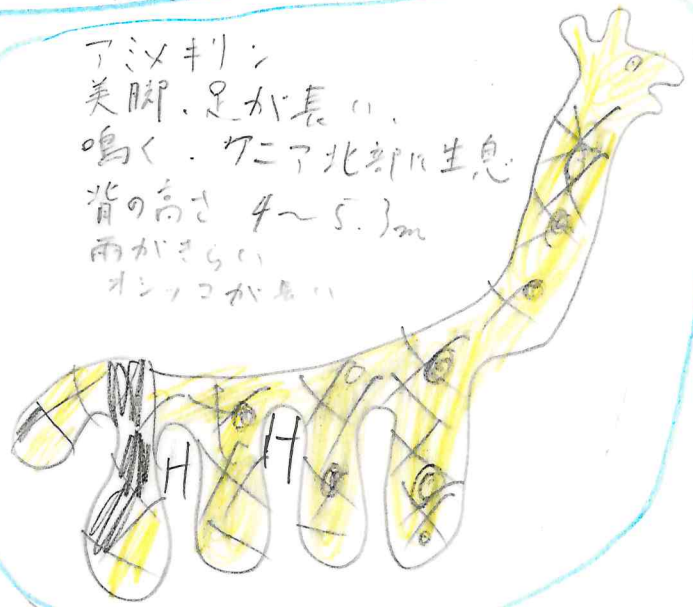 アミメキリン
美脚、足が長い、
鳴く、ケニア北部に生息
背の高さ 4〜5.3m
雨がきらい
オシッコが長い
H H